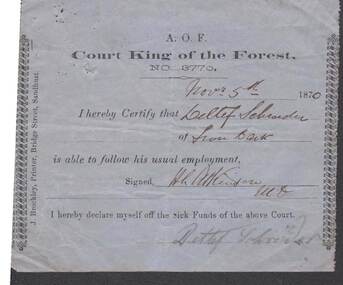 A. O. F.
Court King of the Forest,
NO. 3770.
Novr 5th 1870
I hereby Certify that Detlef Schroder
of Iron Bark
is able to follow his usual employment.
Signed, H L Atkinson
M D
I hereby declare myself off the Sick Funds of the above Court.
Detlef Schroder
J. Burchley, Printer, Bridge Street, Sandhurst